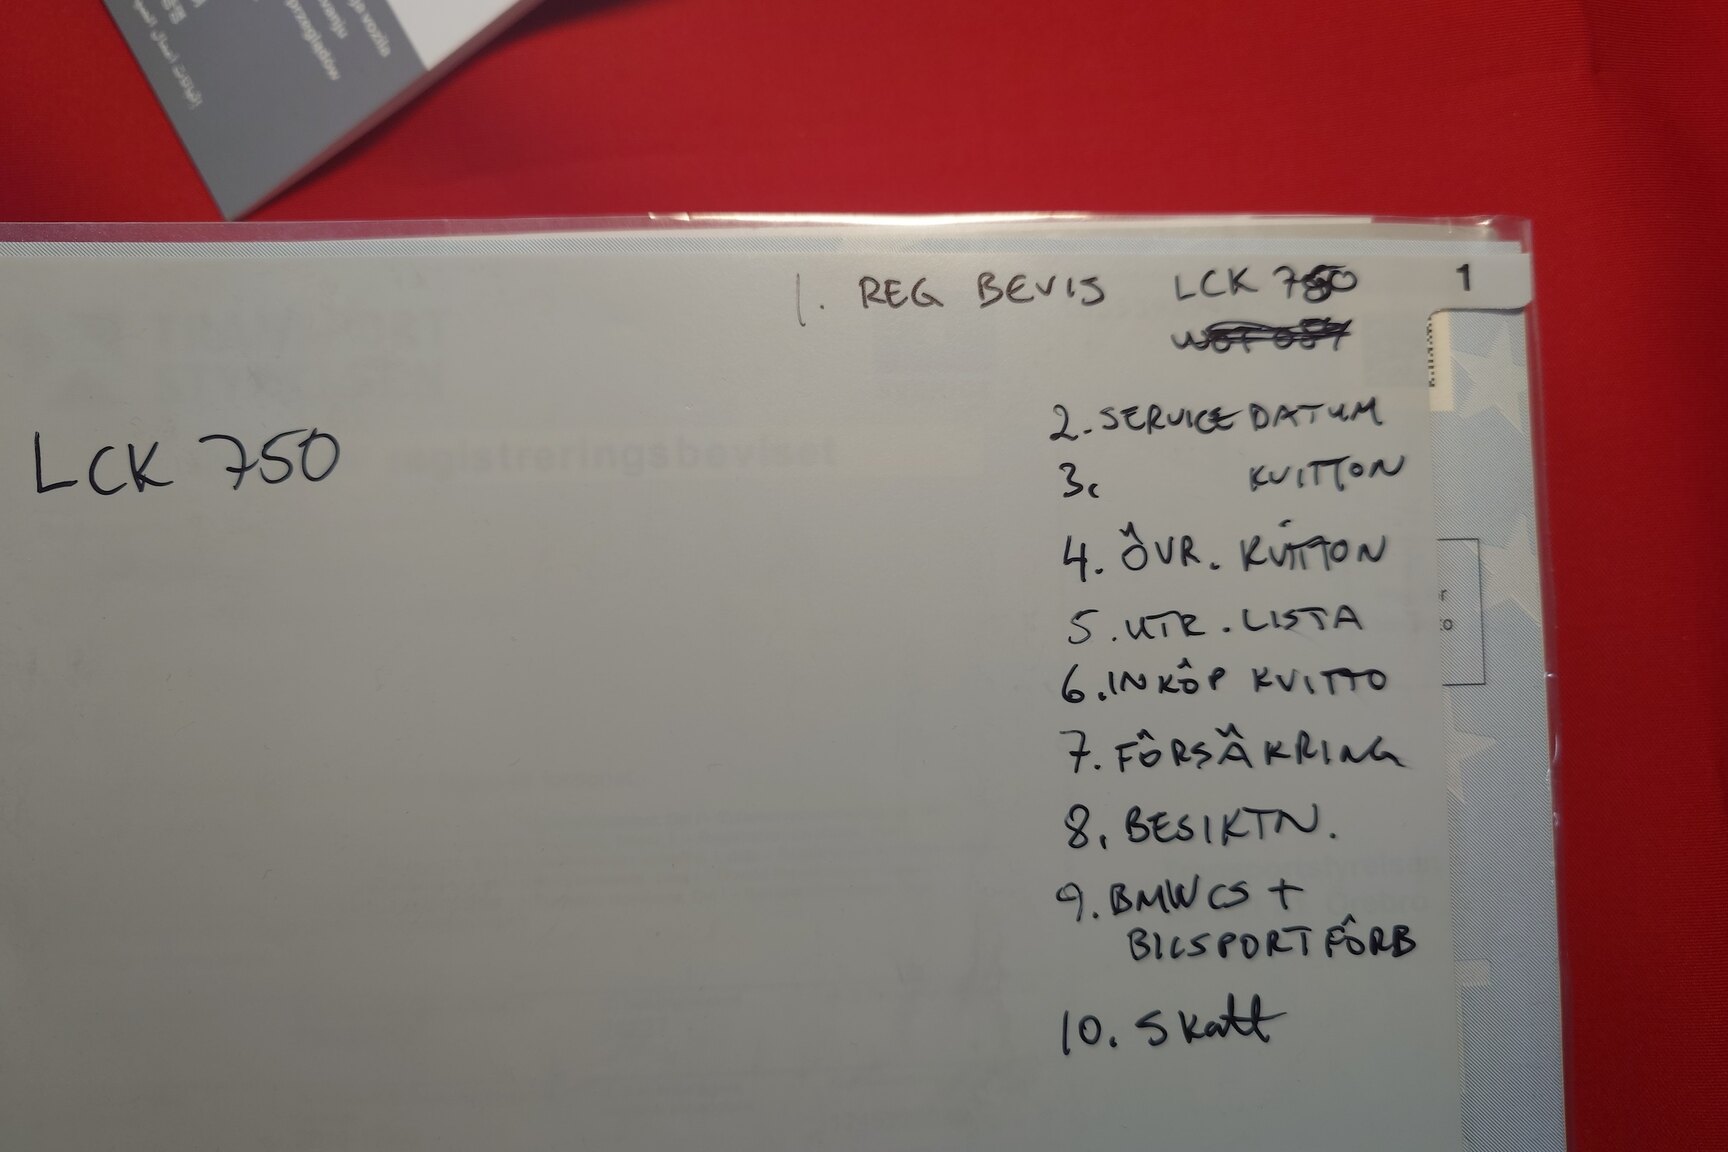 vozila
przeglądów
1. REG BEVIS LCK 750
1
2. SERVICE DATUM
LCK 750
registreringsbeviset
3. KVITTON
4. ÖVR. KVITTON
5. UTR. LISTA
6. INKÖP KVITTO
7. FÖRSÄKRING
8. BESIKTN.
9. BMWCS +
BILSPORTFÖRB
10. Skatt